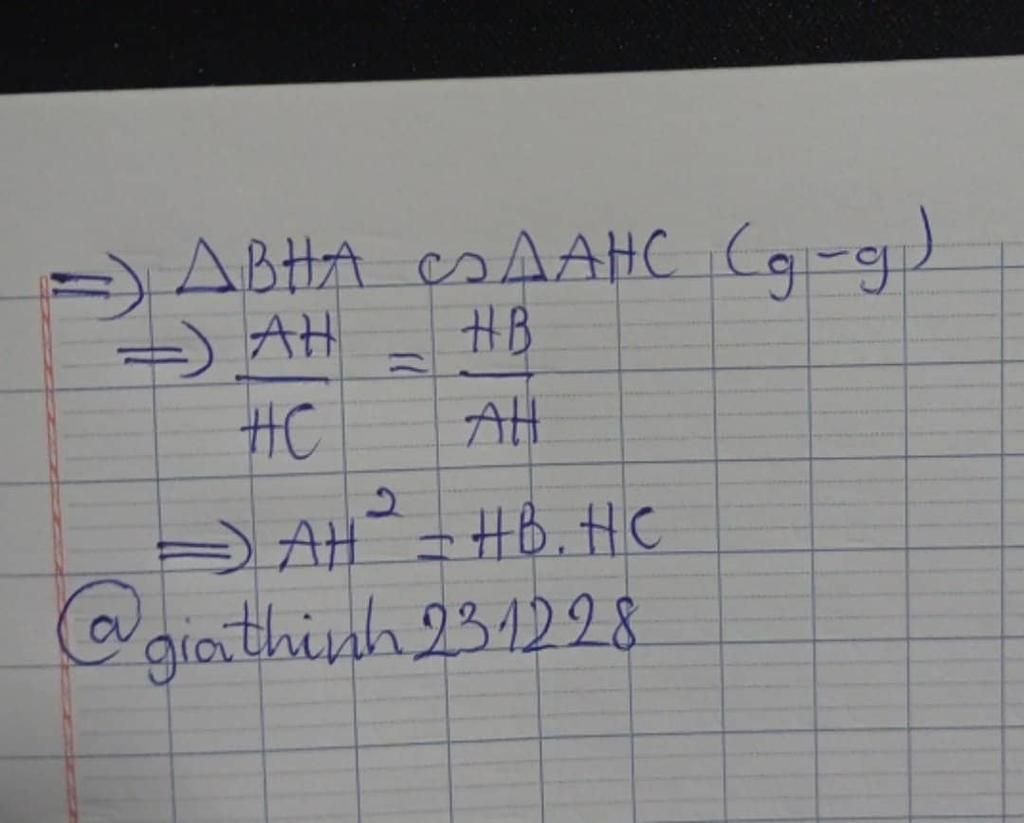 => ΔBHA ∽ ΔAHC (g-g)
=> AH/HC = HB/AH
=> AH² = HB. HC
@giathinh231228